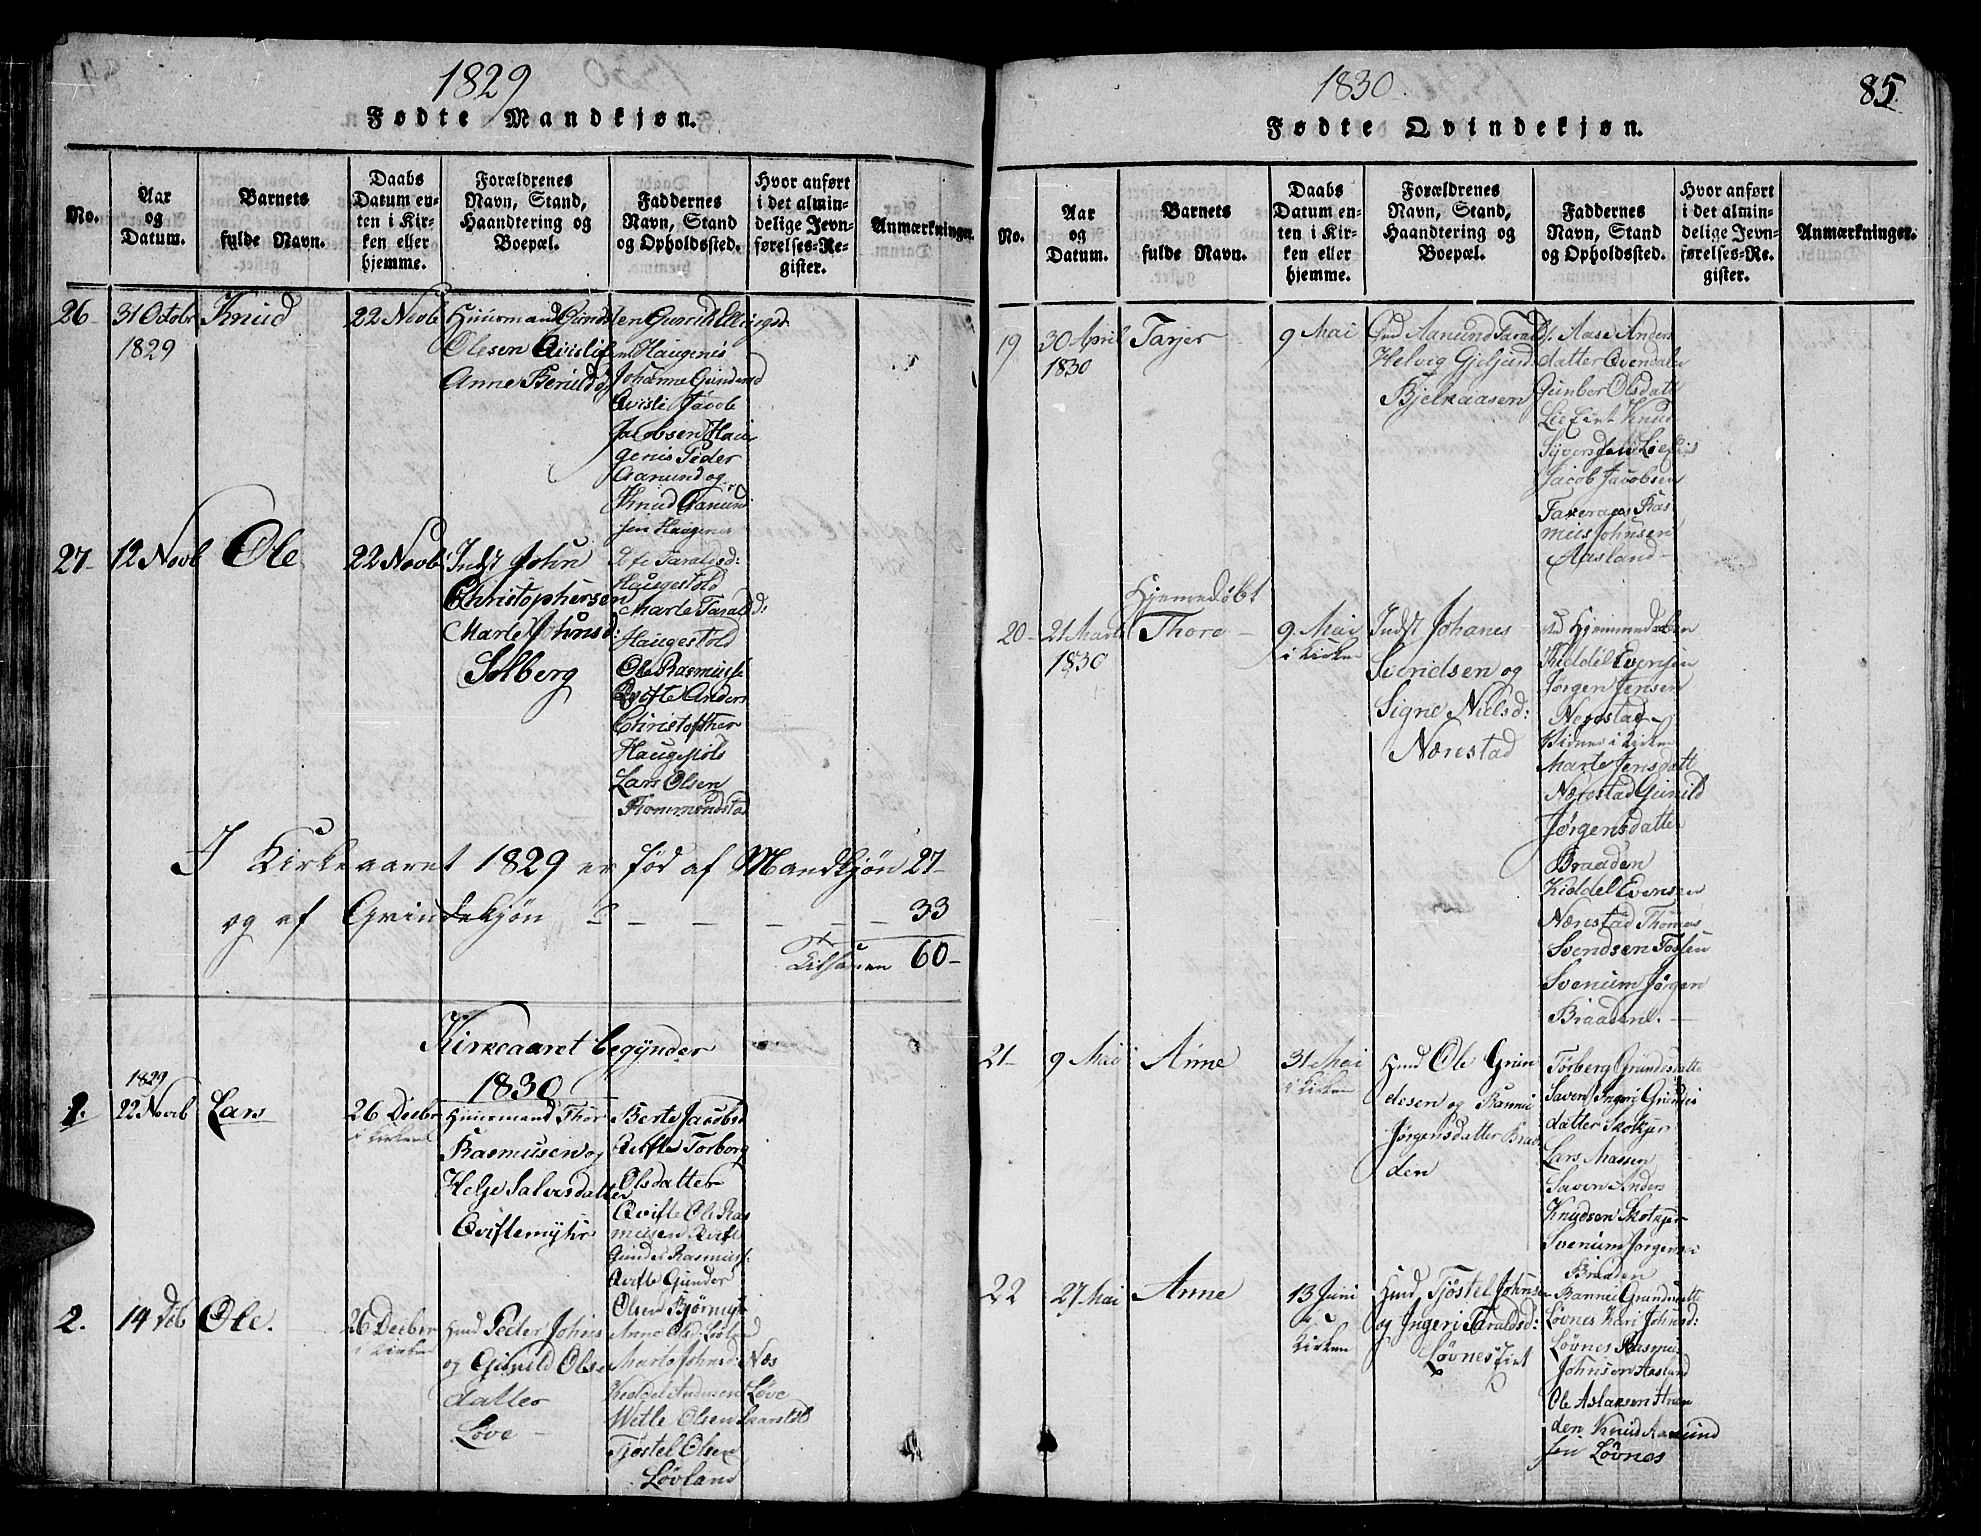 1829
Fødte Mandkjøn.
No.
Aar
og
Datum.
Barnets
fulde Navn.
Daabs
Datum en-
ten i Kir-
ken eller
hjemme.
Forældrenes
Navn, Stand,
Haandtering og
Boepæl.
Faddernes
Navn, Stand
og Opholdssted.
Hvor anført
i det almin-
delige Jevn-
førelses-Re-
gister.
Anmærkninger.
26
31 Octobr
1829
Knud
22 Novb
Huusmand Gunds
Olesen Qvislie
Anne
Haugenis
Johanne Gundersd
Qvisli Jacob
Jacobsen Hau
genis Peder
Aamund og
Knud Aamun
sen Haugenes
27
12 Novb
Ole
22 Novb
Indst John
Christophersen
Marte Johnsd:
Solberg
Taraldsd:
Haugestold
Marte Taralsd:
Haugestold
Ole Rasmuss
Qvifte Anders
Christopher
Haugestold
Lars Olsen
Trommondstad
I Kirkeaaret 1829 er fød af Mandkjøn 27
og af Qvindekjøn 33
Tilsamen 60
Kirkeaaret begynder
1830
1.
1829
22 Novb
Lars
26 Decbr
i Kirken
Huusmand Thor
Rasmusen og
Helje Salvesdatter
Qviftemyhr
Berte Jacobsd
Qvifte Torborg
Olsdatter
Qvifte Ole Ras
musen Qvifte
Gunder Rasmuss:
Qvifte Gunder
Olsen Bjørmyr
2.
14 Deb
Ole.
26 Decbr
i Kirken
Huud Peder Johns
og Gunild Olse
datter
Løve
Anne Olsd Løvland
Marte Johnsd: Næs
Kedgel Andersen Løve
Wetle Olsen Skarstol
Tjøstel Olsen
Løvland
1830
85
Fødte Qvindekjøn.
No.
Aar
og
Datum.
Barnets
fulde Navn.
Daabs
Datum en-
ten i Kir-
ken eller
hjemme.
Forældrenes
Navn, Stand,
Haandtering og
Boepæl.
Faddernes
Navn, Stand
og Opholdssted.
Hvor anført
i det almin-
delige Jevn-
førelses-Re-
gister.
Anmærkninger.
19
30 April
1830
Tarjer
9 Mai
Aamund Taral
Helvig Gjeljard
Bjelkaasen
Aase Anders
datter Ovendalen
Gunbor Olsdatt
Lie Eiet Knud
Syversen Lie
Jacob Jacobsen
Taxeraas Ras
mus Johnsen
Aasland
20
21 Marts
1830
Hjemmedøbt
Thore
9 Mai
i Kirken
Indst Johanes
Svendsen og
Signe Nielsd:
Nærestad
ved Hjemmedaaben
Kiddel Evensen
Jørgen Jensen
Nærestad
i Kirken
Marte Jensdatt
Nærestad Gunild
Jørgensdatter
Braaden
Kiddel Evensen
Nærestad Thomas
Svendsen Tosten
Svenum Jørgen
Braaden.
21
9 Mai
Anne
31 Mai
i Kirken
Huud Ole Gun
desen og Ranni
Jørgensdatter Braa
den
Torberg Gundesdatte
Saven Ingerj Gundes
datter Skotkjer
Lars Massen
Saven Anders
Knudsen Skotkjer
Svenum Jørgen
Braaden
22
27 Mai
Anne
13 Juni
i
Kirken
Huud Tjøstel Johnse
og Ingeri Taraldsd:
Løvnes Eiet
Rannei Gundersdatte
Løvnes Kari Johnsd:
Løvnes Rasmus
Johnsen Aasland
Ole Aslaksen Straa
den Knud Aamund
sen Løvnes